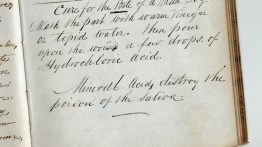 Cure for the bite of a Mad Dog
Wash the part with warm Vinegar
or tepid water. Then pour
upon the wound a few drops of
Hydrochloric Acid.
Mineral Acids destroy the
poison of the saliva